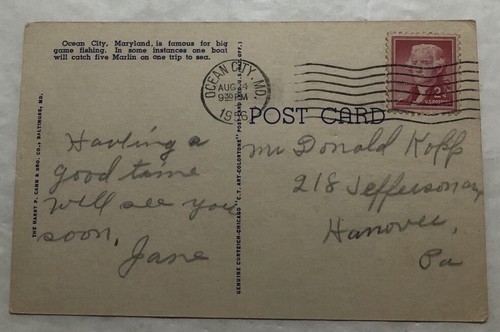 Ocean City, Maryland, is famous for big
game fishing. In some instances one boat
will catch five Marlin on one trip to sea.
THE HARRY P. CANN & BRO. CO., BALTIMORE, MD.
Having a
good time
will see you
soon,
Jane
GENUINE CURTEICH-CHICAGO "C.T. ART-COLORTONE" POST CARD
OCEAN CITY, MD.
AUG
9 PM
1956
2¢
POST CARD
Mr Donald Kopp
218 Jefferson
Hanover,
Pa